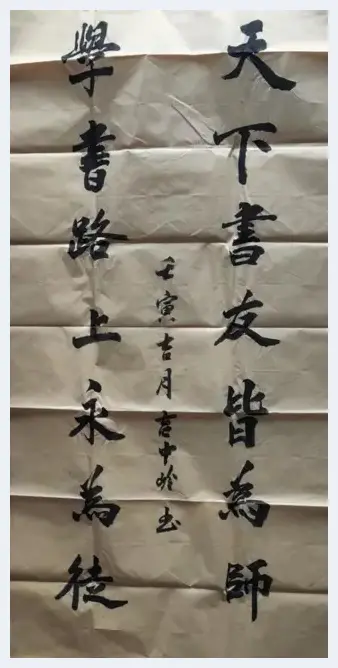 天下書友皆為師
學書路上永為徒
壬寅吉月 吉中玲 书